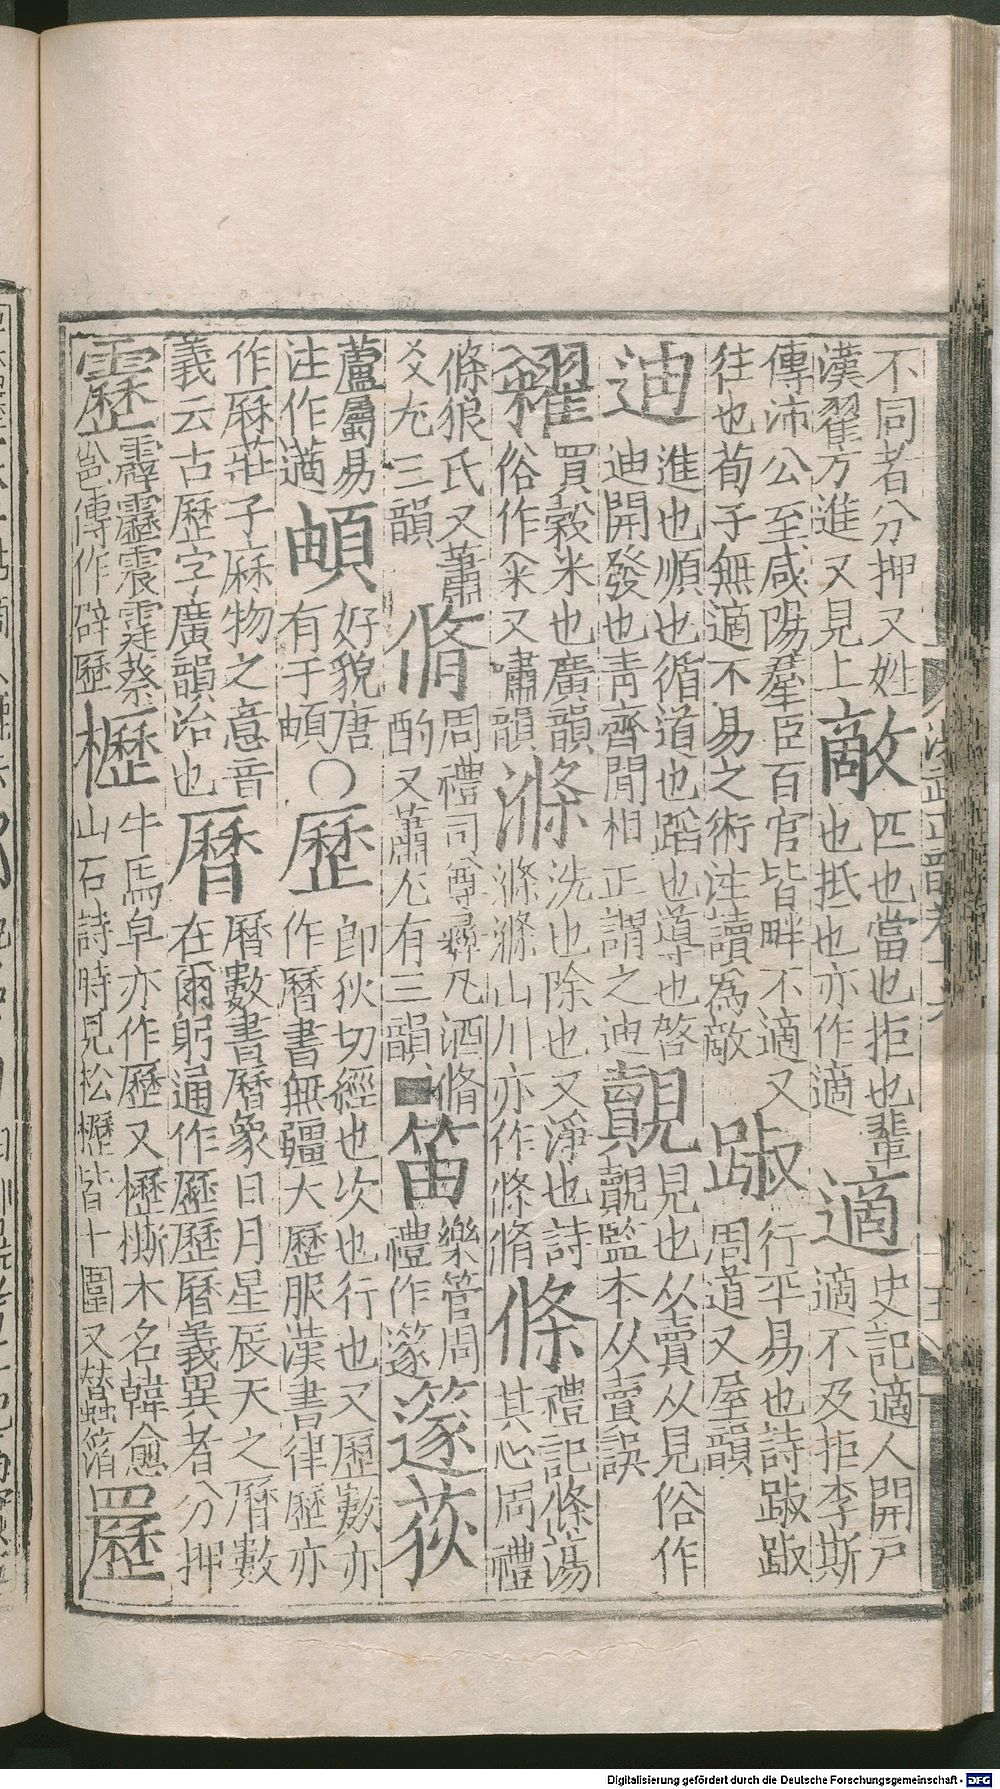 不同者分押又姓
漢翟方進又見上
敵
匹也當也拒也輩
也抵也亦作適
適
史記適人開戸
適不及拒李斯
傳沛公至咸陽羣臣百官皆畔不適又
往也荀子無適不易之術注讀為敵
踧
行平易也詩踧踧
周道又屋韻
迪
進也順也循道也蹈也導也啓
迪開發也靑齊閒相正謂之迪
覿
見也从賣从見俗作
覿監本从賣誤
糴
買穀米也廣韻
俗作籴又嘯韻
滌
洗也除也又淨也詩
滌滌山川亦作滌脩
條
禮記條蕩
其心周禮
條狼氏又蕭
爻尢三韻
脩
周禮司尊彝凡酒脩
酌又蕭尤有三韻
笛
樂管周
禮作篴
篴
荻
蘆屬易
注作藡
頔
好貌唐
有于頔
〇
歷
郎狄切經也次也行也又歷數亦
作曆書無疆大歷服漢書律歷亦
作厤莊子厤物之意音
義云古歷字廣韻治也
曆
曆數書曆象日月星辰天之曆數
在爾躬通作歷歷曆義異者分押
靂
霹靂震霆蔡
邕傳作辟歷
櫪
牛馬皁亦作歷又櫪㯕木名韓愈
山石詩時見松櫪皆十圍又蠶簿
𦌟
洪武正韻卷十六
十五
Digitalisierung gefördert durch die Deutsche Forschungsgemeinschaft - DFG